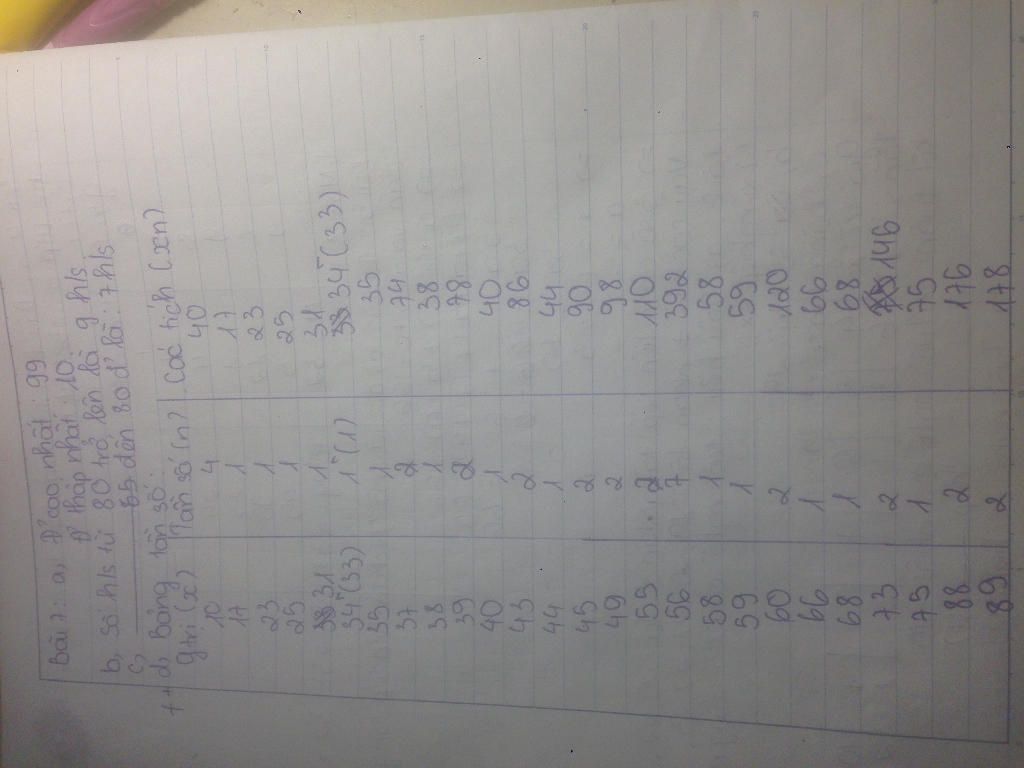 Bài 7: a, Đ' cao nhất: 99
Đ' thấp nhất: 10
b, Số hls từ 80 trở lên là 9 hls
c, 65 đến 80 đ' là: 7 hls
f+d, Bảng tần số:
gtrị (x) Tần số (n) Các tích (xn)
10 4 40
17 1 17
23 1 23
25 1 25
31 1 31
34 (33) 1 (1) 34 (33)
35 1 35
37 2 74
38 1 38
39 2 78
40 1 40
43 2 86
44 1 44
45 2 90
49 2 98
55 2 110
56 7 392
58 1 58
59 1 59
60 2 120
66 1 66
68 1 68
73 2 146
75 1 75
88 2 176
89 2 178